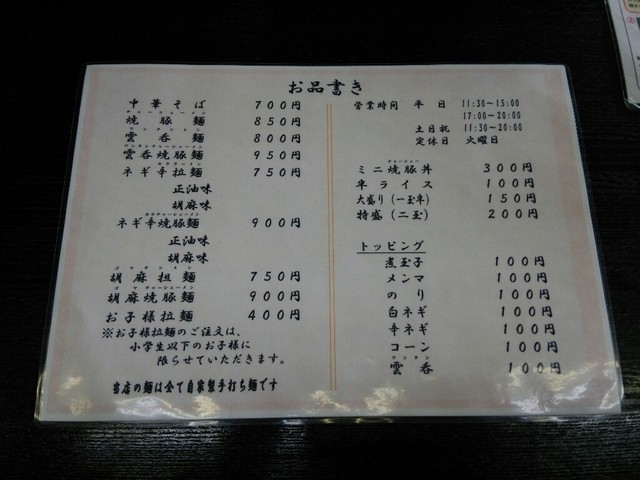 お品書き
中華そば 700円
チャーシューメン
焼豚麺 850円
ワンタンメン
雲呑麺 800円
ワンタンチャーシューメン
雲呑焼豚麺 950円
ネギ辛拉麺 750円
正油味
胡麻味
ネギ辛焼豚麺 900円
正油味
胡麻味
胡麻担麺 750円
胡麻焼豚麺 900円
お子様拉麺 400円
※お子様拉麺のご注文は、
小学生以下のお子様に
限らせていただきます。
当店の麺は全て自家製手打ち麺です
営業時間 平日 11:30~15:00
17:00~20:00
土日祝 11:30~20:00
定休日 火曜日
チャーシュー
ミニ焼豚丼 300円
半ライス 100円
大盛り(一玉半) 150円
特盛(二玉) 200円
トッピング
煮玉子 100円
メンマ 100円
のり 100円
白ネギ 100円
辛ネギ 100円
コーン 100円
ワンタン
雲呑 100円